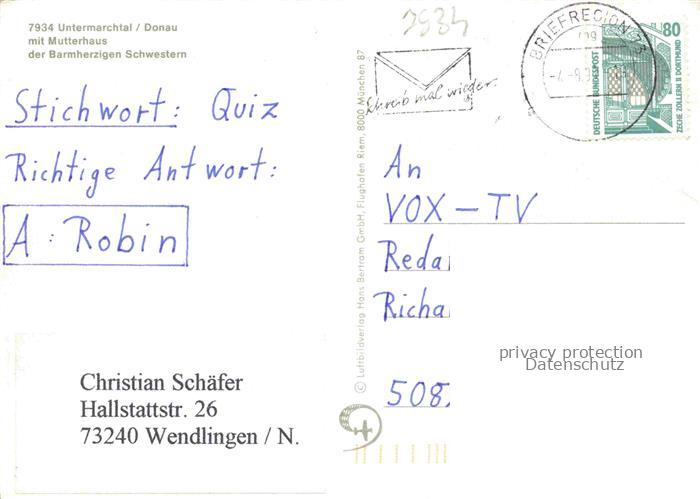 7934 Untermarchtal / Donau
mit Mutterhaus
der Barmherzigen Schwestern
Stichwort: Quiz
Richtige Antwort:
A: Robin
Christian Schäfer
Hallstattstr. 26
73240 Wendlingen / N.
© Luftbildverlag Hans Bertram GmbH, Flughafen Riem, 8000 München 87
7934
Schreib mal wieder.
BRIEFREGION 73
mg
80
DEUTSCHE BUNDESPOST
ZECHE ZOLLERN II DORTMUND
An
VOX – TV
Reda
Richa
508
privacy protection
Datenschutz